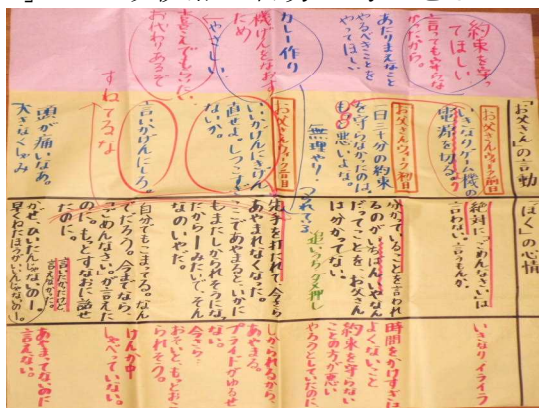 「お父さん」の言動
「ぼく」の心情
お父さんウィーク前日
いきなりゲーム機の
電源を切る。
お父さんウィーク初日
一日三十分の約束
を守らなかったのは、
も悪いよな。
無理やり
お父さんウィーク三日目
いいかげんにきげん
直せよ。しつこすぎ
ないか。
言いかげんにしろ。
すねてるな
頭が痛いなあ。
大きなくしゃみ
約束を守っ
てほしい
言っても守らな
かったから。
あたりまえなこと
やるべきことを
やってほしい
カレー作り
機げんをなおす
ため
やさしい
言えんでもいい
おかわりあるぞ
絶対に、「ごめんなさい」は
言わない。言うもんか。
分かっていることを言われ
るのがいちばんいやなん
だってことを、お父さん
は分かってない。
追いうち ダメ押し
つかれてる
先手を打たれて、今さら
あやまれなくなった。
ここであやまるといかに
もまたしかられそうな
だから―みたいで、そん
なのいやだ。
自分でもこまってる。なん
でだろう。今までなら、
「ごめんなさい」が言えた
のに。もっとすなおに話せ
たのに。
言いたかったけど
言えなかった。
かぜ、ひいたんじゃないの―。
早くねたほうがいいんじゃないの―。
いきなり イライラ
時間をかけすぎは
よくないこと
約束を守らない
ことの方が悪い
やろうとしていたのに
しかられるから、
あやまる。
プライドがゆるせ
ない。
今さら…
おそいと、もっとおこ
られそう。
けんか中
しゃべっていない。
あやまってないのに
言えない。